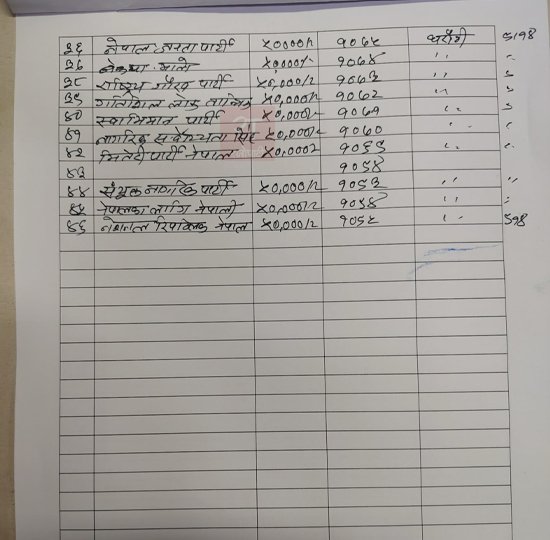 ३६ नेपाल जनता पार्टी ५०००० १०६५ धरौटी ५।१८
३७ नेकपा माले ५०,००० १०६४ ,,
३८ राष्ट्रिय गौरव पार्टी ५०,०००/२ १०६३ ,,
३९ गतिशिल लोकतान्त्रिक ५०,०००/२ १०६२ ,,
४० स्वाभिमान पार्टी ५०,००० १०६१ ,,
४१ नागरिक सर्वोच्चता ५०,००० १०६० ,,
४२ मितेरी पार्टी नेपाल ५०,००० १०५९ ,,
४३ १०५४
४४ संयुक्त नागरिक पार्टी ५०,०००/२ १०५३ ,,
४५ नेपालका लागि नेपाली ५०,०००/२ १०५४ ,,
४६ नेशनल रिपब्लिक नेपाल ५०,०००/२ १०५८ ,, ५।१८